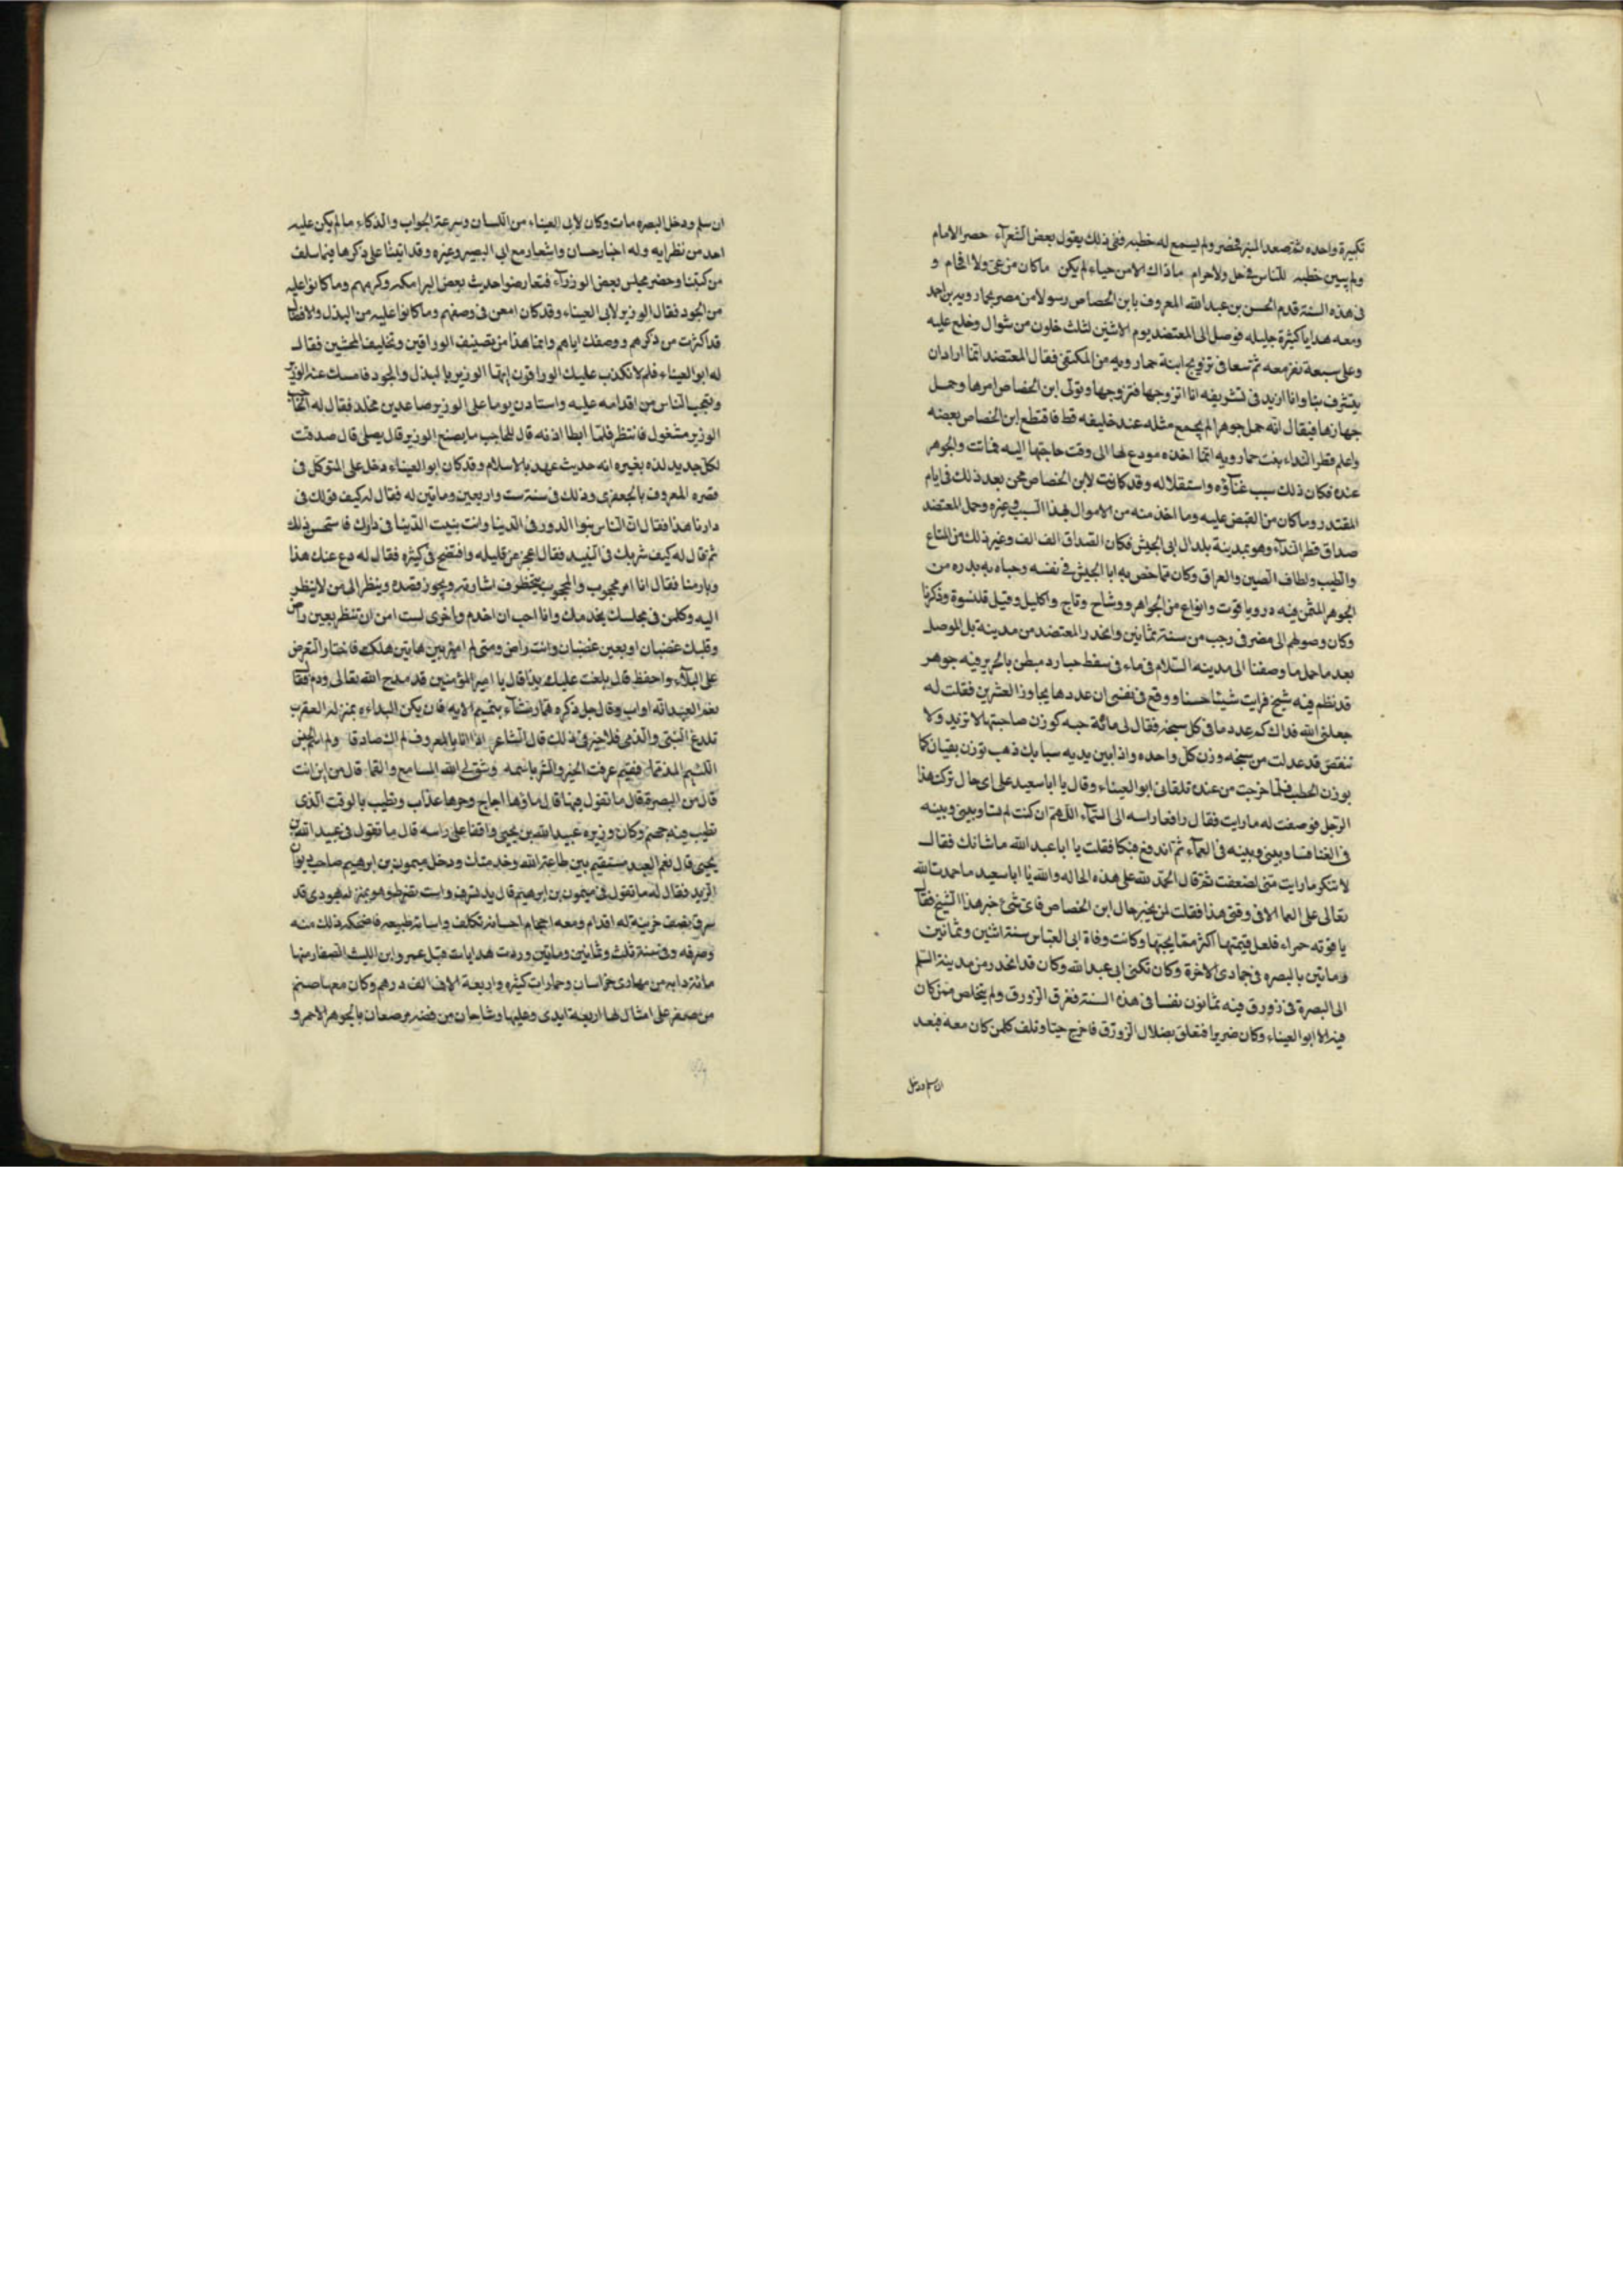 تكبيرة واحده ثم صعد المنبر فحضر ولم يسمع له خطبه ففى ذلك يقول بعض الشعرآء حصر الامام
ولم يبين خطبه للناس فى حل ولا حرام ما ذاك الا من حياء لم يكن ما كان من عى ولا افحام و
فى هذه السنة قدم الحسن بن عبد الله المعروف بابن الحصاص رسولا من مصر بخمارويه بن احمد
ومعه هدايا كثيرة جليله فوصل الى المعتضد يوم الاثنين لثلث خلون من شوال وخلع عليه
وعلى سبعة نفر معه ثم سعا فى تزويج ابنة خمارويه من المكتفى فقال المعتضد انما اراد ان
يتشرف بنا وانا ازيد فى تشريفه انا اتزوجها فتزوجها وتولى ابن الحصاص امرها وحمل
جهازها فيقال انه حمل جوهرا لم يجمع مثله عند خليفه قط فاقتطع ابن الحصاص بعضه
واعلم قطر النداء بنت خمارويه انما اخذه مودع لها الى وقت حاجتها اليه فماتت والجوهر
عنده فكان ذلك سبب غنآؤه واستقلاله وقد كانت لابن الحصاص محن بعد ذلك فى ايام
المقتدر وما كان من القبض عليه وما اخذ منه من الاموال بهذا السبب وغيره وحمل المعتضد
صداق قطر النداء وهو بمدينة بلد ال ابى الجيش فكان الصداق الف الف وغير ذلك من المتاع
والطيب ولطاف الصين والعراق وكان مما خص به ابا الجيش فى نفسه وحباه به بدره من
الجوهر المثمن فيه در وياقوت وانواع من الجواهر ووشاح وتاج واكليل وقيل قلنسوة وذكرنا
وكان وصولهم الى مصر فى رجب من سنة ثمانين وانحدر المعتضد من مدينة بل الموصل
بعد ما حمل ما وصفنا الى مدينه السلام فى ماء فى سفط مبطن بالحرير فيه جوهر
قد نظم فيه شبح فرايت شيئا حسنا ووقع فى نفسى ان عددها يجاوز العشرين فقلت له
جعلنى الله فداك كم عدد ما فى كل سبحه فقال لى مائة حبه كوزن صاحبتها لا تزيد ولا
تنقص قد عدلت من سبحه وزن كل واحده واذا بين يديه سبايك ذهب توزن بقبان كما
يوزن الحطب فلما خرجت من عنده تلقانى ابو العيناء وقال يا ابا سعيد على اى حال تركت هذا
الرجل فوصفت له ما رايت فقال رافعا راسه الى السمآء اللهم ان كنت لم تساو بينى وبينه
فى الغنا فساو بينى وبينه فى العمآء ثم اندفع فبكا فقلت يا ابا عبد الله ما شانك فقال
لا تنكر ما رايت منى لضعفت ثم قال الحمد لله على هذه الحاله والله يا ابا سعيد ما حمدت الله
تعالى على العما الا فى وقتى هذا فقلت لمن يخبر حال ابن الحصاص فاى شئ خبر هذا الشيخ فقال
ياقوته حمراء فلعل قيمتها اكثر مما يجبها وكانت وفاة ابى العباس سنة اثنين وثمانين
ومائتين بالبصره فى جمادى الاخرة وكان تكنى ابى عبد الله وكان قد انحدر من مدينة السلم
الى البصرة فى زورق فيه ثمانون نفسا فى هذه السنة فغرق الزورق ولم يتخلص ممن كان
فيه الا ابو العيناء وكان ضريرا فتعلق بضلال الزورق فاخرج حيا وتلف كلمن كان معه فبعد
ان سلم ودخل
ان سلم ودخل البصره مات وكان لابى العيناء من اللسان وسرعة الجواب والذكاء ما لم يكن عليه
احد من نظرايه وله اخبار حسان واشعار مع ابى البصير وغيره وقد اتينا على ذكرها فيما سلف
من كتبنا وحضر مجلس بعض الوزرآء فتعارضوا حديث بعض البرامكه وكرمهم وما كانوا عليه
من الجود فقال الوزير لابى العيناء وقد كان امعن فى وصفهم وما كانوا عليه من البذل والافضال
قد اكثرت من ذكرهم ووصفك اياهم وانما هذا من تصنيف الوراقين وتخليف المحشين فقال
له ابو العيناء فلم لا تكذب عليك الوراقون ايها الوزير بالبذل والجود فامسك عنه الوزير
وتعجب الناس من اقدامه عليه واستاذن يوما على الوزير صاعد بن مخلد فقال له الحاجب
الوزير مشغول فانتظر فلما ابطا اذنه قال للحاجب ما يصنع الوزير قال يصلى قال صدقت
لكل جديد لذه يغيره انه حديث عهد بالاسلام وقد كان ابو العيناء دخل على المتوكل فى
قصره المعروف بالجعفرى وذلك فى سنة ست واربعين ومايتين له فقال له كيف قولك فى
دارنا هذا فقال ان الناس بنوا الدور فى الدنيا وانت بنيت الدنيا فى دارك فاستحسن ذلك
ثم قال له كيف شربك فى النبيذ فقال اعجز عن قليله وافتضح فى كثيره فقال له دع عنك هذا
ونادمنا فقال انا امر محجوب والمحجوب يتخطرف اشارته ويجوز قصده وينظر الى من لا ينظر
اليه وكلمن فى مجلسك يخدمك وانا احب ان اخدم واخرى لست امن ان تنظر بعين راض
وقلبك غضبان او بعين غضبان وانت راض ومتى لم اميز بين هاتين هلكت فاختار التعرض
على البلآء واحفظ قال بلغت عليك بذا قال يا امير المؤمنين قد مدح الله تعالى وذم فقال
نعم العبد انه اواب وقال جل ذكره هماز مشآء بنميم الايه فان يكن البداءه بمنزله العقرب
تلدغ النبى والذمى فلا خير فى ذلك قال الشاعر اذا انا بالمعروف لم اك صادقا ولم اشتم الجبس
اللئيم المذمما ففيم عرفت الخير والشر باسمه وشق لى الله المسامع والفما قال من اين انت
قال من البصرة قال ما تقول فيها قال ماؤها اجاج وحرها عذاب وتطيب بالوقت الذى
تطيب فيه جهنم وكان وزيره عبيد الله بن يحيى واقفا على راسه قال ما تقول فى عبيد الله بن
يحيى قال نعم العبد مستقيم بين طاعة الله وخدمتك ودخل ميمون بن ابرهيم صاحب ديوان
البريد فقال له ما تقول فى ميمون بن ابرهيم قال يد تسرق واست تضرط وهو بمنزله يهودى قد
سرق نصف خزينة له اقدام ومعه احجام احسانه تكلف واسائه طبيعه فاضحكه ذلك منه
وصرفه وفى سنة ثلث وثمانين ومايتين وردت هدايا من قبل عمرو ابن الليث الصفار منها
مائة دابه من مهارى خراسان وجمازات كثيره واربعة الاف الف درهم وكان معها صنم
من صفر على امثال لها اربعة ايدى وعليها وشاحان من فضه مرصعان بالجوهر الاحمر و